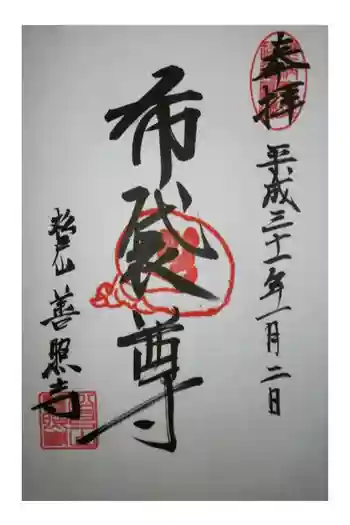 奉拝
平成三十一年一月二日
布袋尊
松戸仙
善照寺